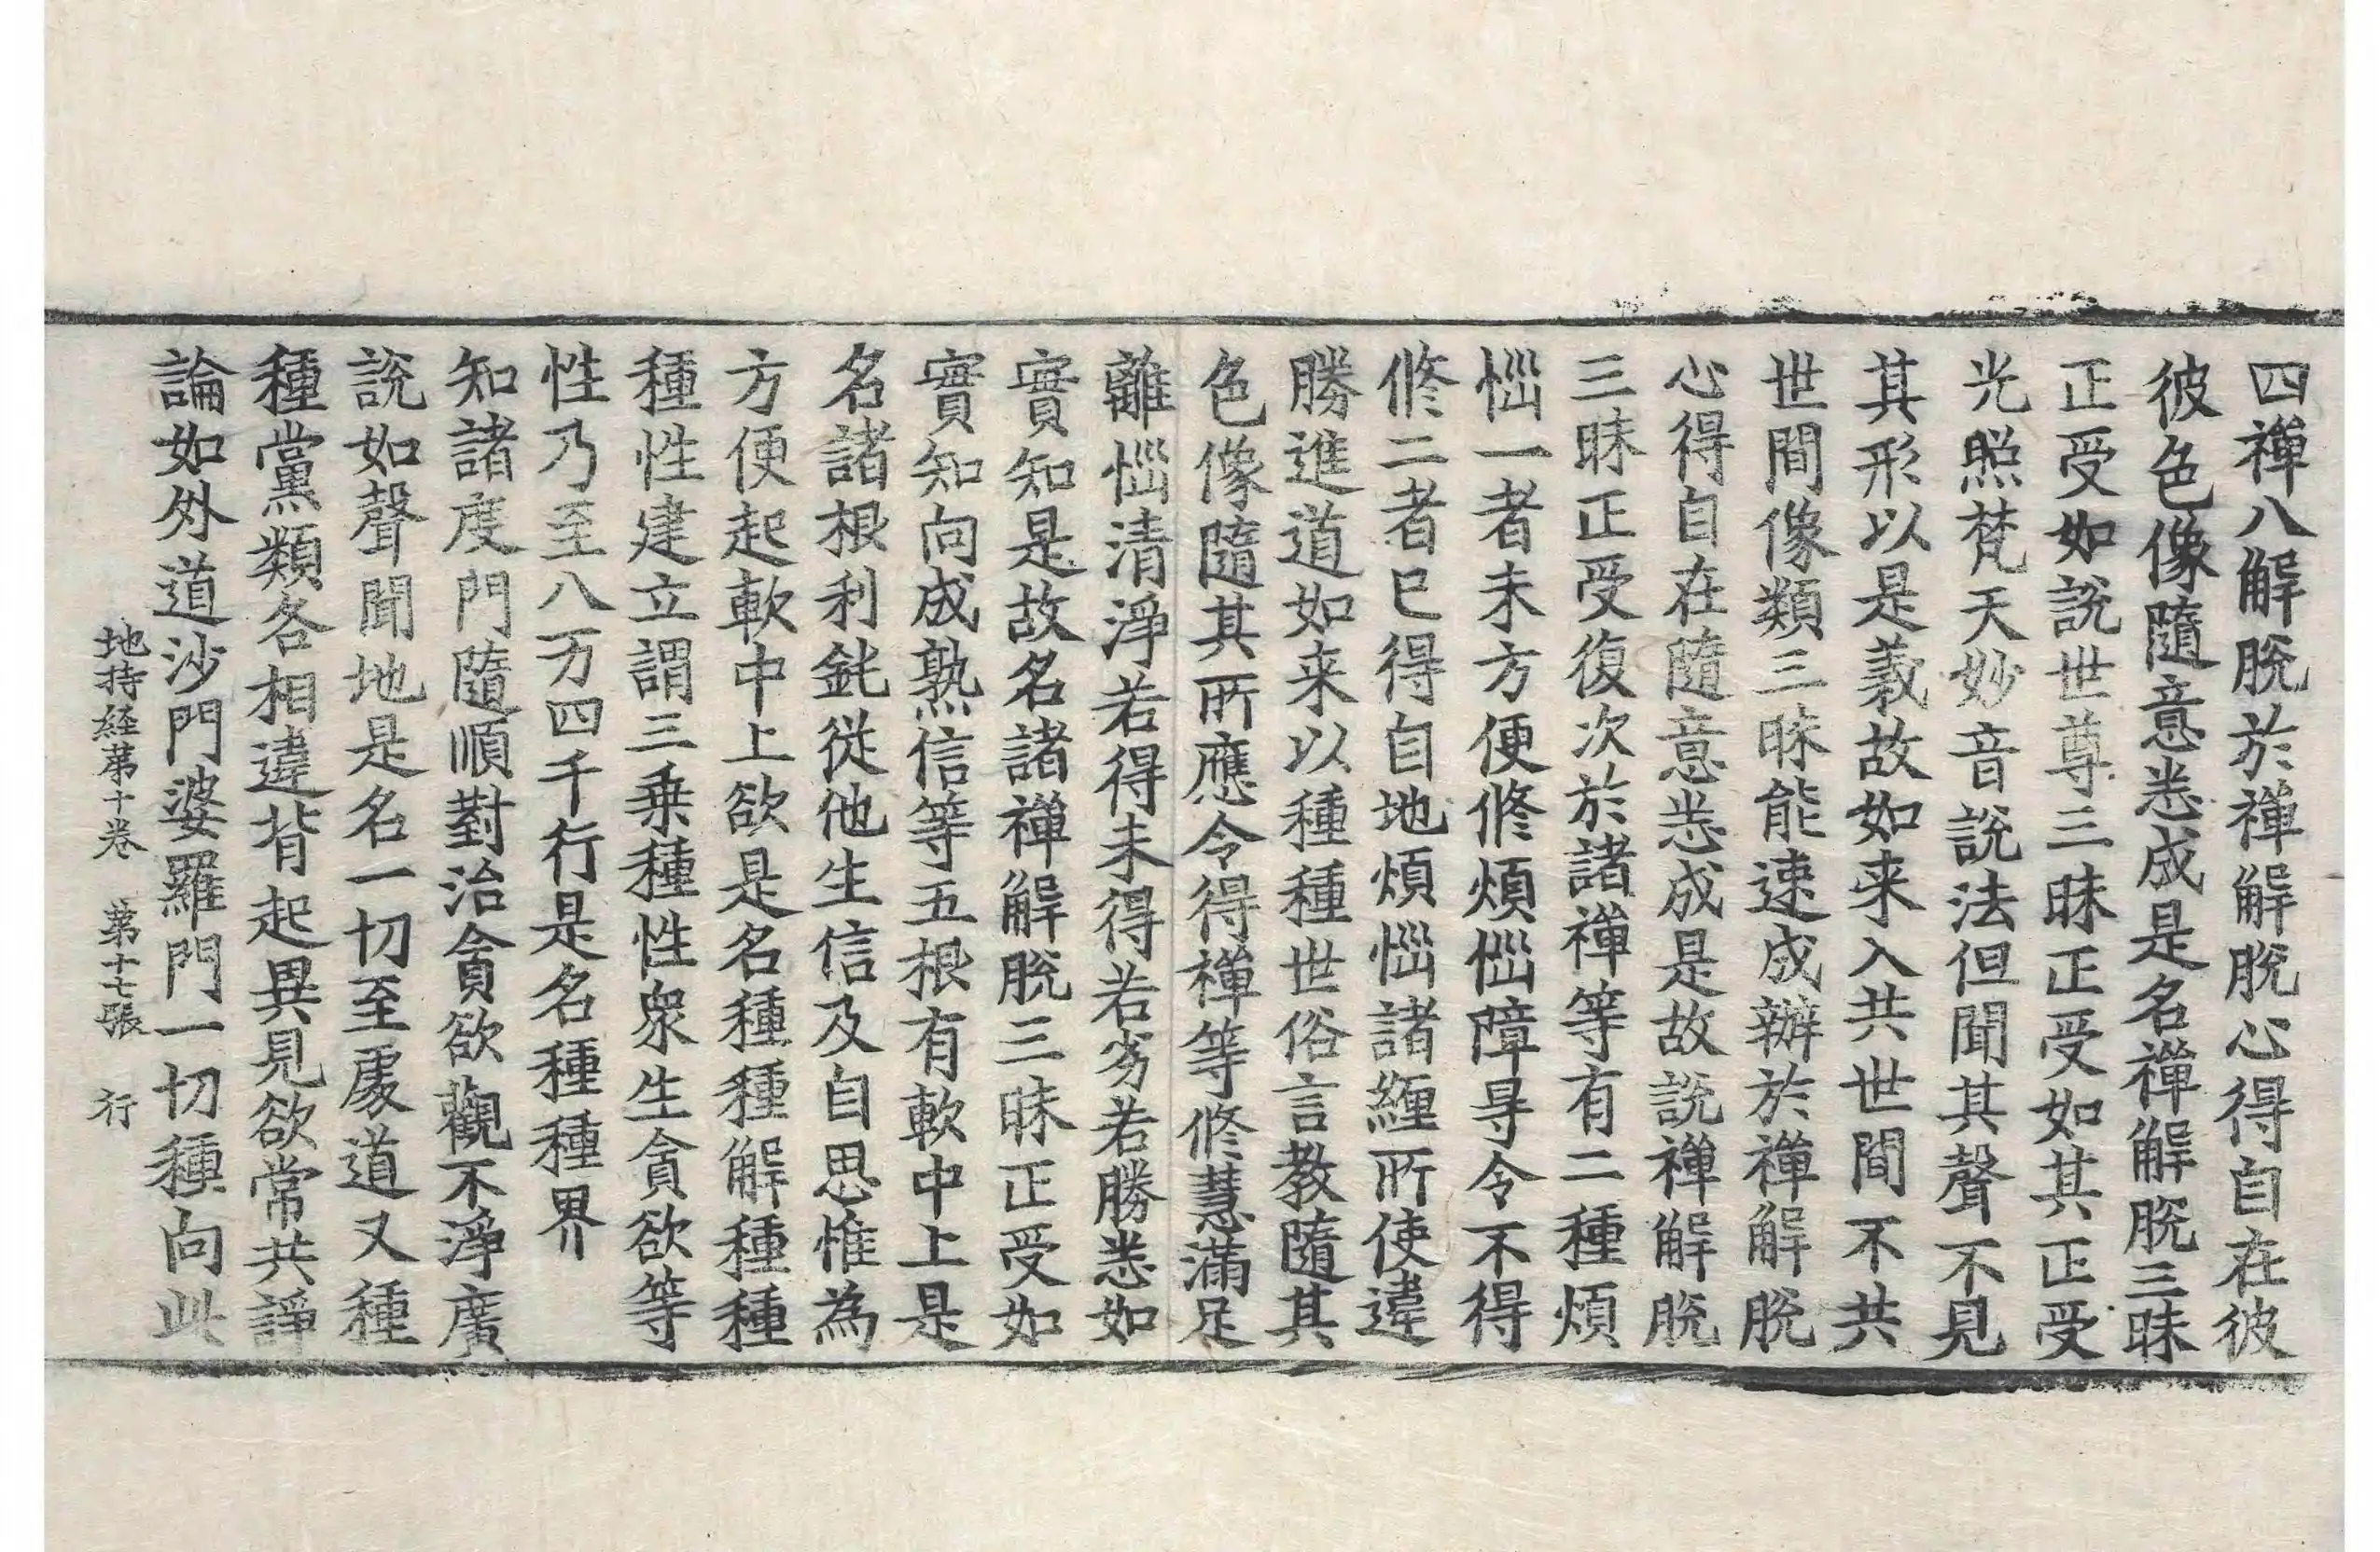 四禪八解脫於禪解脫心得自在彼
彼色像隨意悉成是名禪解脫三昧
正受如說世尊三昧正受如其正受
光照梵天妙音說法但聞其聲不見
其形以是義故如来入共世間不共
世間像類三昧能速成辦於禪解脫
心得自在隨意悉成是故說禪解脫
三昧正受復次於諸禪等有二種煩
惱一者未方便修煩惱障㝵令不得
修二者已得自地煩惱諸纏所使違
勝進道如来以種種世俗言教隨其
色像隨其所應令得禪等修慧滿足
離惱清淨若得未得若劣若勝悉如
實知是故名諸禪解脫三昧正受如
實知向成熟信等五根有軟中上是
名諸根利鈍從他生信及自思惟為
方便起軟中上欲是名種種解種種
種性建立謂三乗種性衆生貪欲等
性乃至八万四千行是名種種界
知諸度門隨順對治貪欲觀不淨廣
說如聲聞地是名一切至處道又種
種黨類各相違背起異見欲常共諍
論如外道沙門婆羅門一切種向此
地持経苐十卷　苐十七張　行